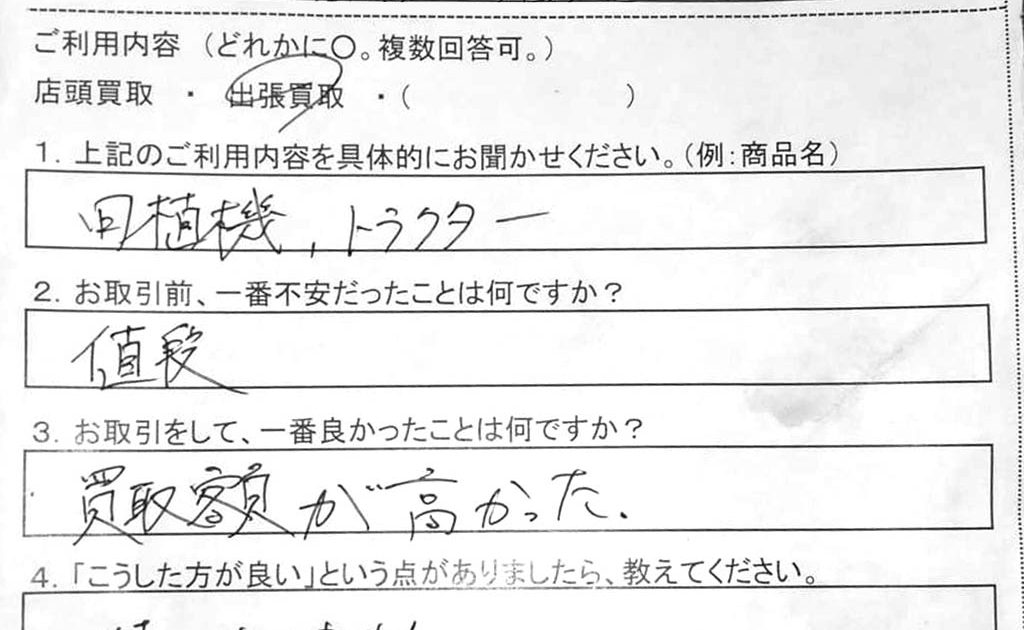 ご利用内容 (どれかに○。複数回答可。)
店頭買取 ・ 出張買取 ・( )
1. 上記のご利用内容を具体的にお聞かせください。(例:商品名)
田植機, トラクター
2. お取引前、一番不安だったことは何ですか?
値段
3. お取引をして、一番良かったことは何ですか?
買取額が高かった.
4. 「こうした方が良い」という点がありましたら、教えてください。